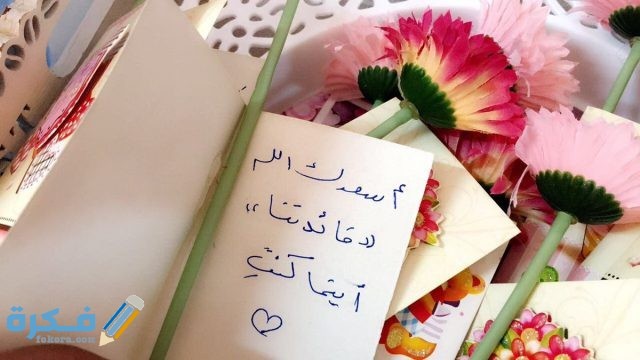 أسعدك الله
"قائدتنا"
أينما كنتِ
فكرة
fekera.com